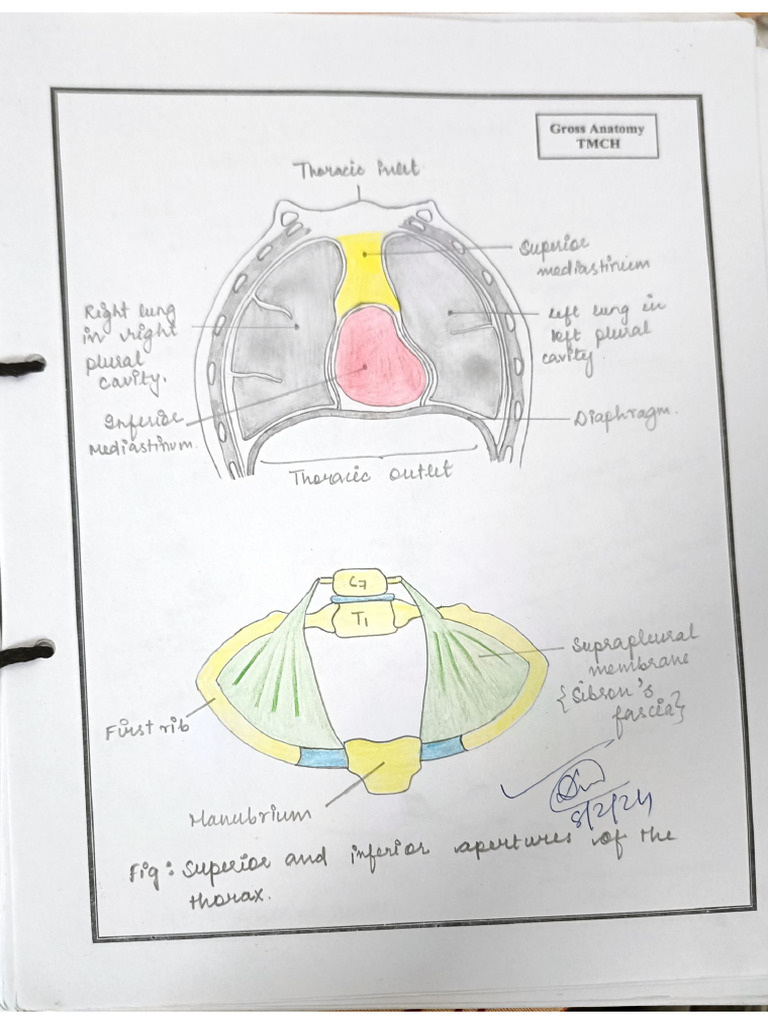 Gross Anatomy
TMCH
Thoracic inlet
Superior
mediastinum
Right lung
in right
plural
cavity.
Left lung in
left plural
cavity
Inferior
Mediastinum.
Diaphragm.
Thoracic outlet
C7
T1
Suprapleural
membrane
{Sibson's
fascia}
First rib
Manubrium
8/2/24
Fig: Superior and inferior apertures of the
thorax.